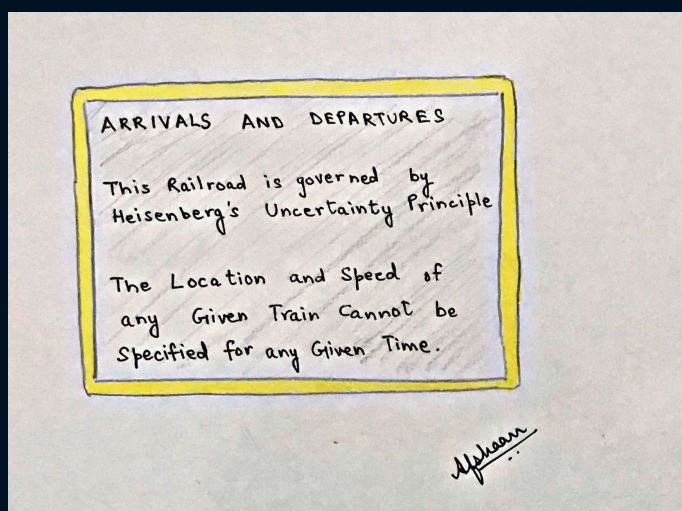 ARRIVALS AND DEPARTURES
This Railroad is governed by
Heisenberg's Uncertainty Principle
The Location and Speed of
any Given Train Cannot be
Specified for any Given Time.
Afshaan